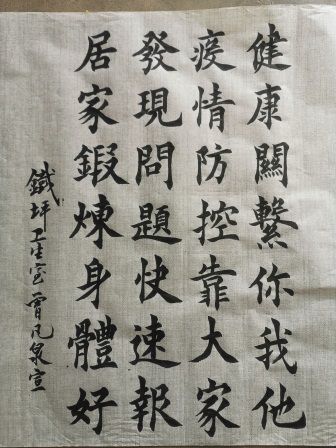 健康關繫你我他
疫情防控靠大家
發現問題快速報
居家鍛煉身體好
鐵坪卫生室曾凡泉宣